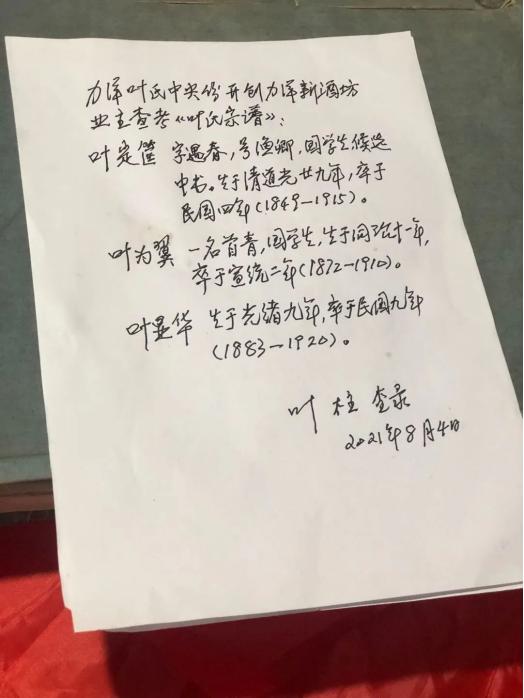 力洋叶氏中央份开创力洋新酒坊
业主查考《叶氏宗谱》：
叶定筐 字遇春，号渔卿，国学生候选
中书。生于清道光廿九年，卒于
民国四年（1849—1915）。
叶为翼 一名首青，国学生，生于同治十一年，
卒于宣统二年（1872—1910）。
叶显华 生于光绪九年，卒于民国九年
（1883—1920）。
叶柱 查录
2021年8月4日